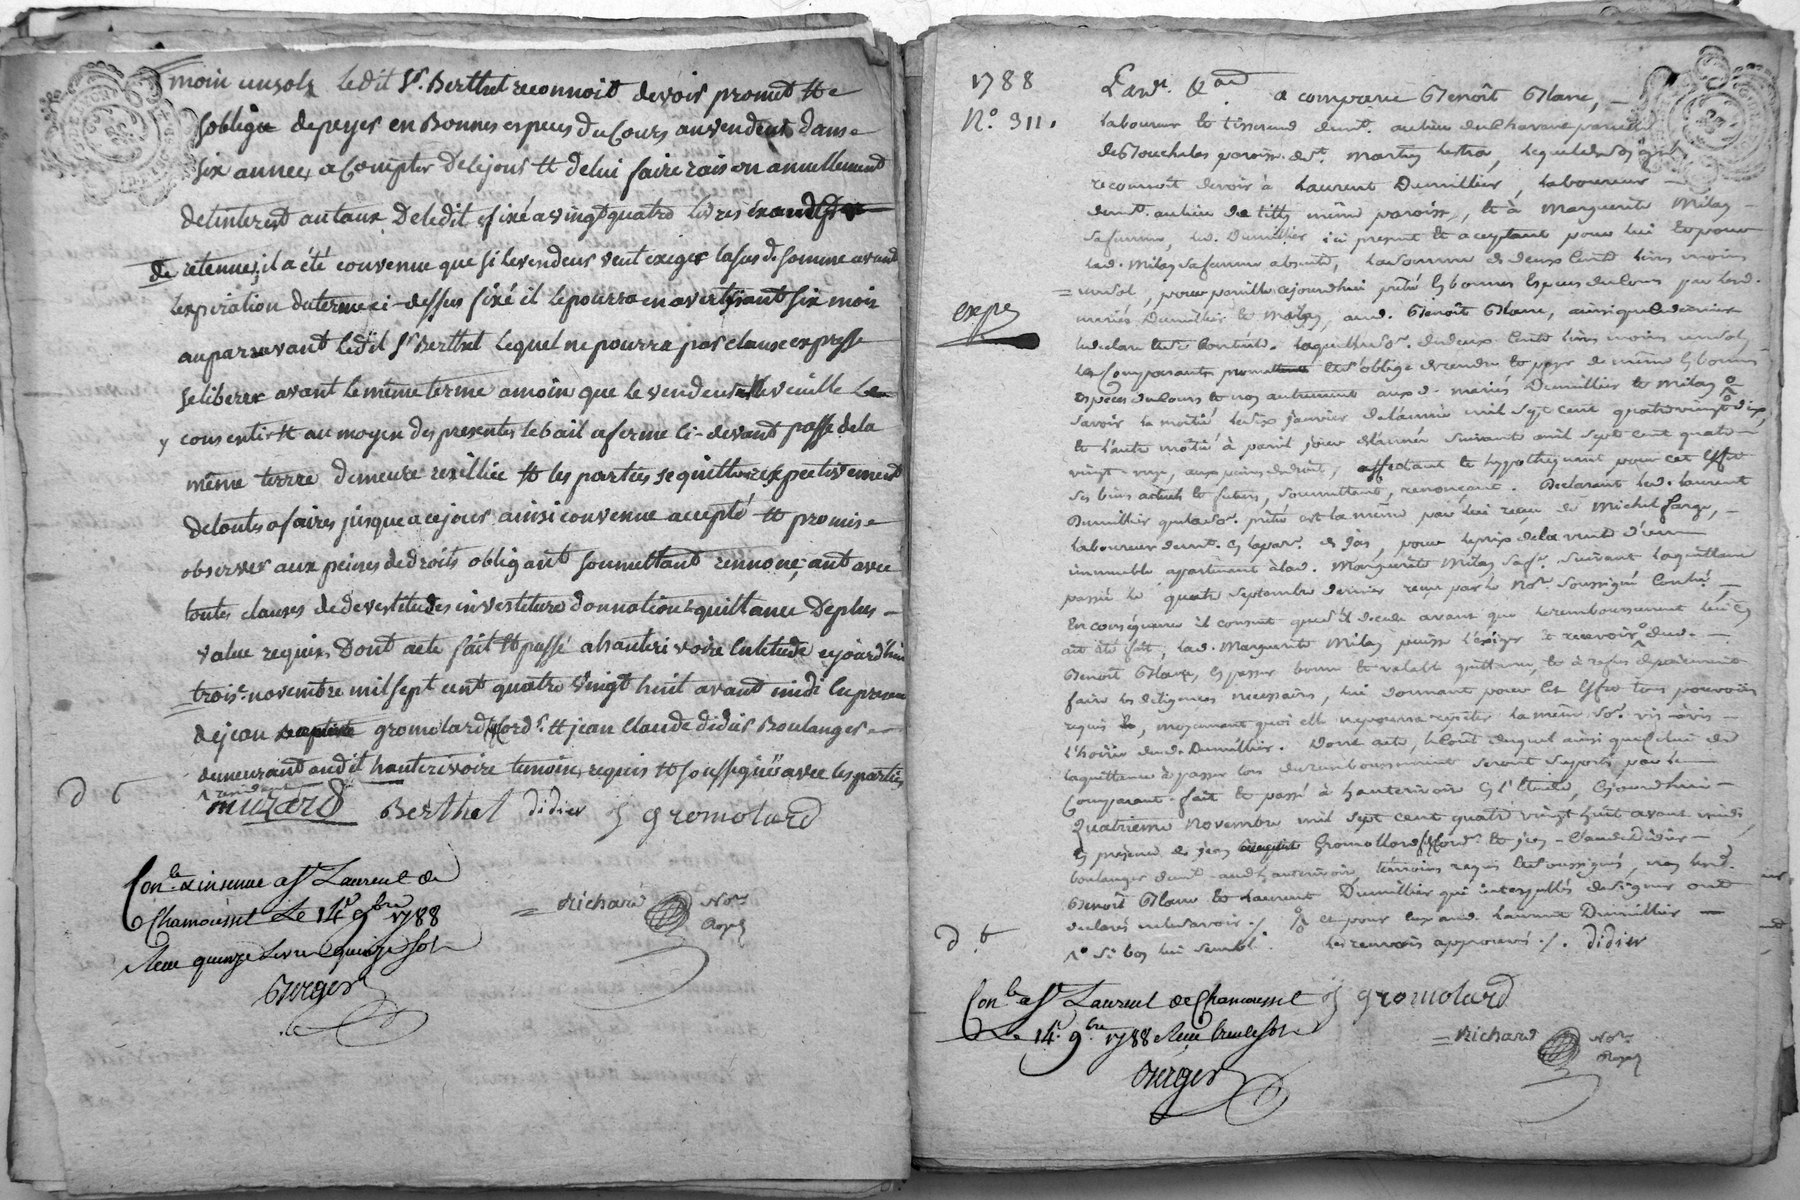 moin un sols ledit Sr. Berthet reconnoit devoir promet et
soblige depayer en Bonnes especes du Cours au vendeur dans
six années a Compter de cejour et delui faire raison annuellement
delinterest au taux Deledit fixé a vingt quatre livres
de retenue, il a été convenue que si levendeur veut exiger la sus de somme avant
lexpiration du terme ci-dessus fixé il le pourra en avertissant six mois
auparavant ledit Sr Berthet lequel ne pourra par clause expresse
se liberer avant le même terme a moin que le vendeur le veuille
y consentir et au moyen des presentes le bail a ferme ci-devant passé dela
même terre demeure resillié et les parties se quitte respectivement
detoutes afaires jusque a cejour, ainsi convenue accepté et promis
observer aux peines de droits obligeant soumettant rennonceant avec
toutes clauses de devestitude investiture donnation quittance De plus
value requis Dont acte fait et passé a hauterivoire en létude cejourdhui
trois. novembre mil sept cent quatre vingt huit avant midi en presence
de jean gromolard Cord. et jean Claude didier Boulanger
demeurant audit hauterivoire temoins requis et soussigné avec les parties
muzard Berthet didier J gromolard
Con.le & insinué a St Laurent de
Chamousset Le 14. 9bre 1788
Reçu quinze Livre quinze sols
Berger
Richard Nore
Royal
1788
N.o 311.
expé
Par. & and a comparu Benoît Blanc,
laboureur et tisserand demt. au lieu de
paroisse de St. Martin Lestra, lequel
reconnoît devoir à Laurent Dumillier, laboureur
demt. au lieu de même paroisse, et à Marguerite Milan
sa femme, led. Dumillier ici present et aceptant pour lui et pour
lad. Milan sa femme absente, la somme de deux cents livres moins
un sol, pour pareille cejourdhui prêté en bonnes especes du cours par lesd.
mariés Dumillier et Milan, aud. Benoît Blanc, ainsi que ce dernier
le declare laquelle so. de deux cents livres moins un sol
le Comparant promet et s'oblige de rendre et payer de même en bonnes
espèces du cours et non autrement aux d. mariés Dumillier et Milan
savoir la moitié le six janvier de l'année mil sept cent quatrevingt dix,
et l'autre moitié à pareil jour de l'année suivante mil sept cent quatre
vingt-onze, aux peines de droit, affectant et hypothequant pour cet effet
ses biens actuels et futurs, soumettant, renonçant. Declarant led. Laurent
Dumillier que lad. so. prêtée est la même par lui reçue de Michel Farge,
laboureur demt. en la par. de Jas, pour le prix de la vente d'un
immeuble apartenant à lad. Marguerite Milan sa fe. suivant la quittance
passée le quatre septembre dernier reçue par le Nore soussigné Controlé.
En conséquence il consent que s'il decede avant que le remboursement lui en
ait été fait, lad. Marguerite Milan puisse l'exiger & recevoir dud.
Benoît Blanc, en passer bonne et valable quittance, et à refus de payement
faire les diligences necessaires, lui donnant pour cet effet tous pouvoirs
requis, moyennant quoi elle ne pourra repeter la même so. vis-à-vis
l'hoirie dud. Dumillier. Dont acte, le cout duquel ainsi que celui de
la quittance à passer lors du remboursement seront suportés par le
Comparant. fait et passé à hauterivoire en l'Etude, cejourdhui
Quatrieme Novembre mil sept cent quatre vingt huit avant midi,
en presence de jean Gromollard Cord. et jean-Claude didier
boulanger demt. aud hauterivoire, témoins requis et soussignés, non lesd.
Benoît Blanc et Laurent Dumillier qui interpellés de signer ont
declaré ne le savoir. et pour eux aud. Laurent Dumillier
si bon lui semble. les renvois approuvés. didier
Con.lé a St Laurent de Chamousset J gromolard
Le 14. 9.bre 1788 Reçu trente sols
Berger
Richard Nore
Royal